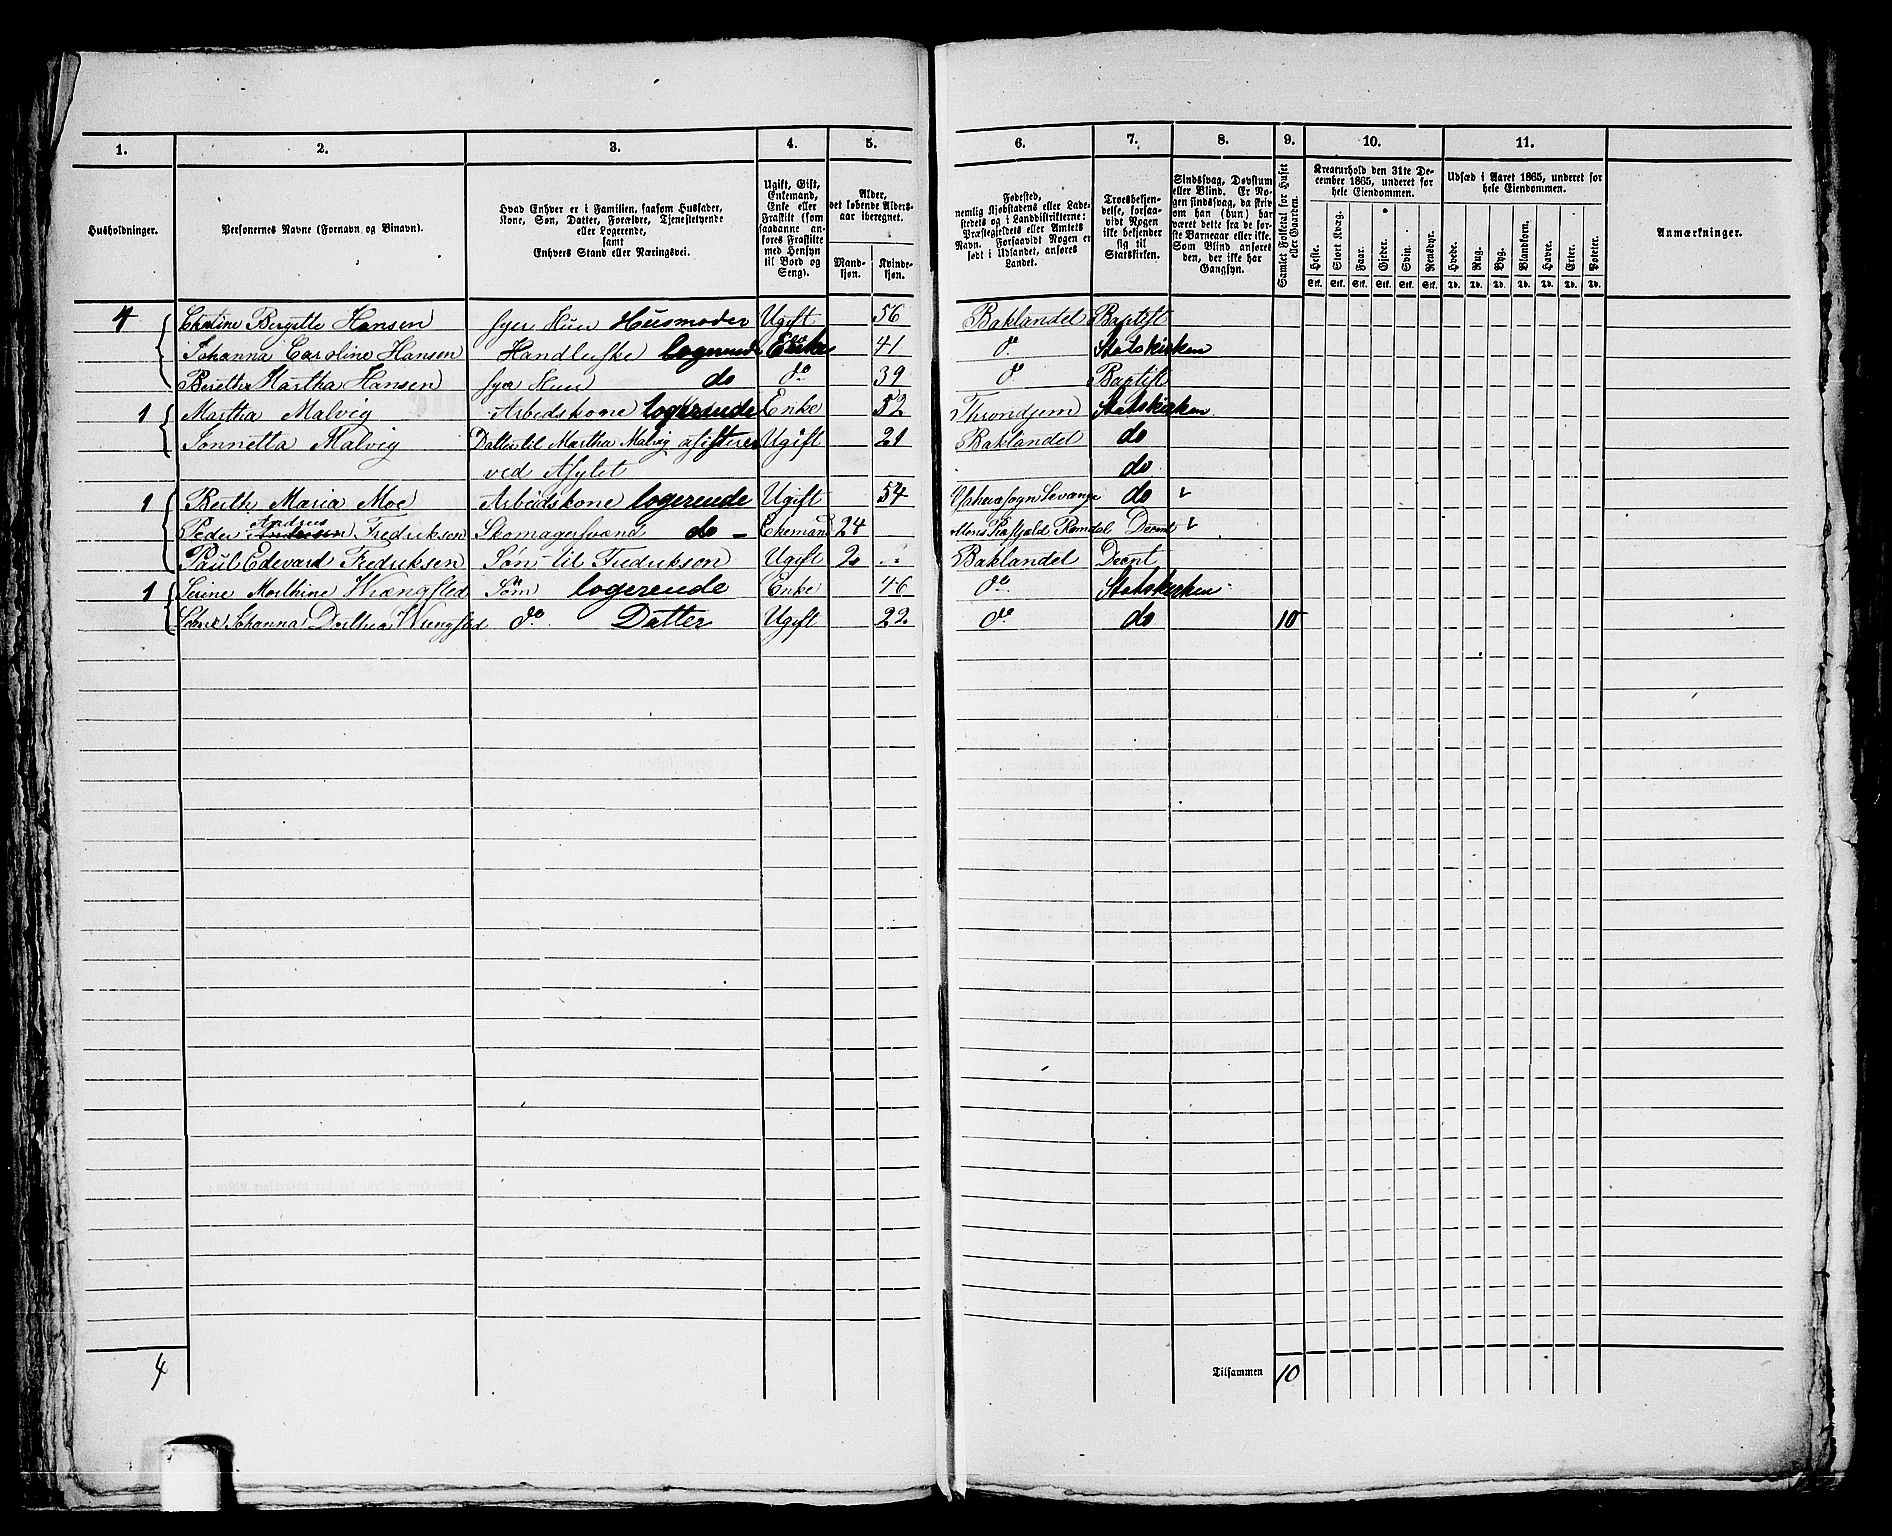 1. 2. 3. 4. 5. 6. 7. 8. 9. 10. 11.
Husholdninger.
Personernes Navne (Fornavn og Binavn).
Hvad Enhver er i Familien, saasom Husfader,
Kone, Søn, Datter, Forældre, Tjenestetyende
eller Logerende,
samt
Enhvers Stand eller Næringsvei.
Ugift, Gift,
Enkemand,
Enke eller
Fraskilt (som
saadanne an-
føres Fraskilte
med Hensyn
til Bord og
Seng).
Alder,
det løbende Alders-
aar iberegnet.
Mand-
kjøn.
Kvinde-
kjøn.
Fødested,
nemlig Kjøbstadens eller Lade-
stedets og i Landdistrikterne:
Præstegjeldets eller Amtets
Navn. Forsaavidt Nogen er
født i Udlandet, anføres
Landet.
Troesbekjen-
delse, forsaa-
vidt Nogen
ikke bekjender
sig til
Statskirken.
Sindssvag, Døvstum
eller Blind. Er No-
gen sindssvag, da skriv
om han (hun) har
været dette fra de før-
ste Barneaar eller ikke.
Som Blind anføres
den, der ikke har
Gangsyn.
Samlet Folketal for Huset
eller Gaarden.
Kreaturhold den 31te De-
cember 1865, underet for
hele Eiendommen.
Heste. Stort Kvæg. Faar. Gjeder. Svin. Rensdyr.
Stk. Stk. Stk. Stk. Stk. Stk.
Udsæd i Aaret 1865, underet for
hele Eiendommen.
Hvede. Rug. Byg. Blandkorn. Havre. Erter. Poteter.
Td. Td. Td. Td. Td. Td. Td.
Anmærkninger.
4 Bergitte Hansen syer Huer Husmoder Ugift 56 Baklandet Baptist
Johanna Caroline Hansen logerende Enke 41 do. Statskirken
Beretha Martha Hansen syer Huer do do 39 do Baptist
1 Martha Malvig Arbeidskone logerende Enke 52 Throndjem Statskirken
Malvig Datter til Martha Malvig Ugift 21 Baklandet do
ved Asylet do
1 Berth Maria Moe Arbeidskone logerende Ugift 54 do
Peder Andreas Fredriksen Skomagersvend do Ekemand 24
Paul Edevard Fredriksen Søn til Fredrikson Ugift 2 Baklandet
1 logerende Enke 46 do. Statskirken
Johanna Dorthea do Datter Ugift 22 do. do 10
4
Tilsammen 10